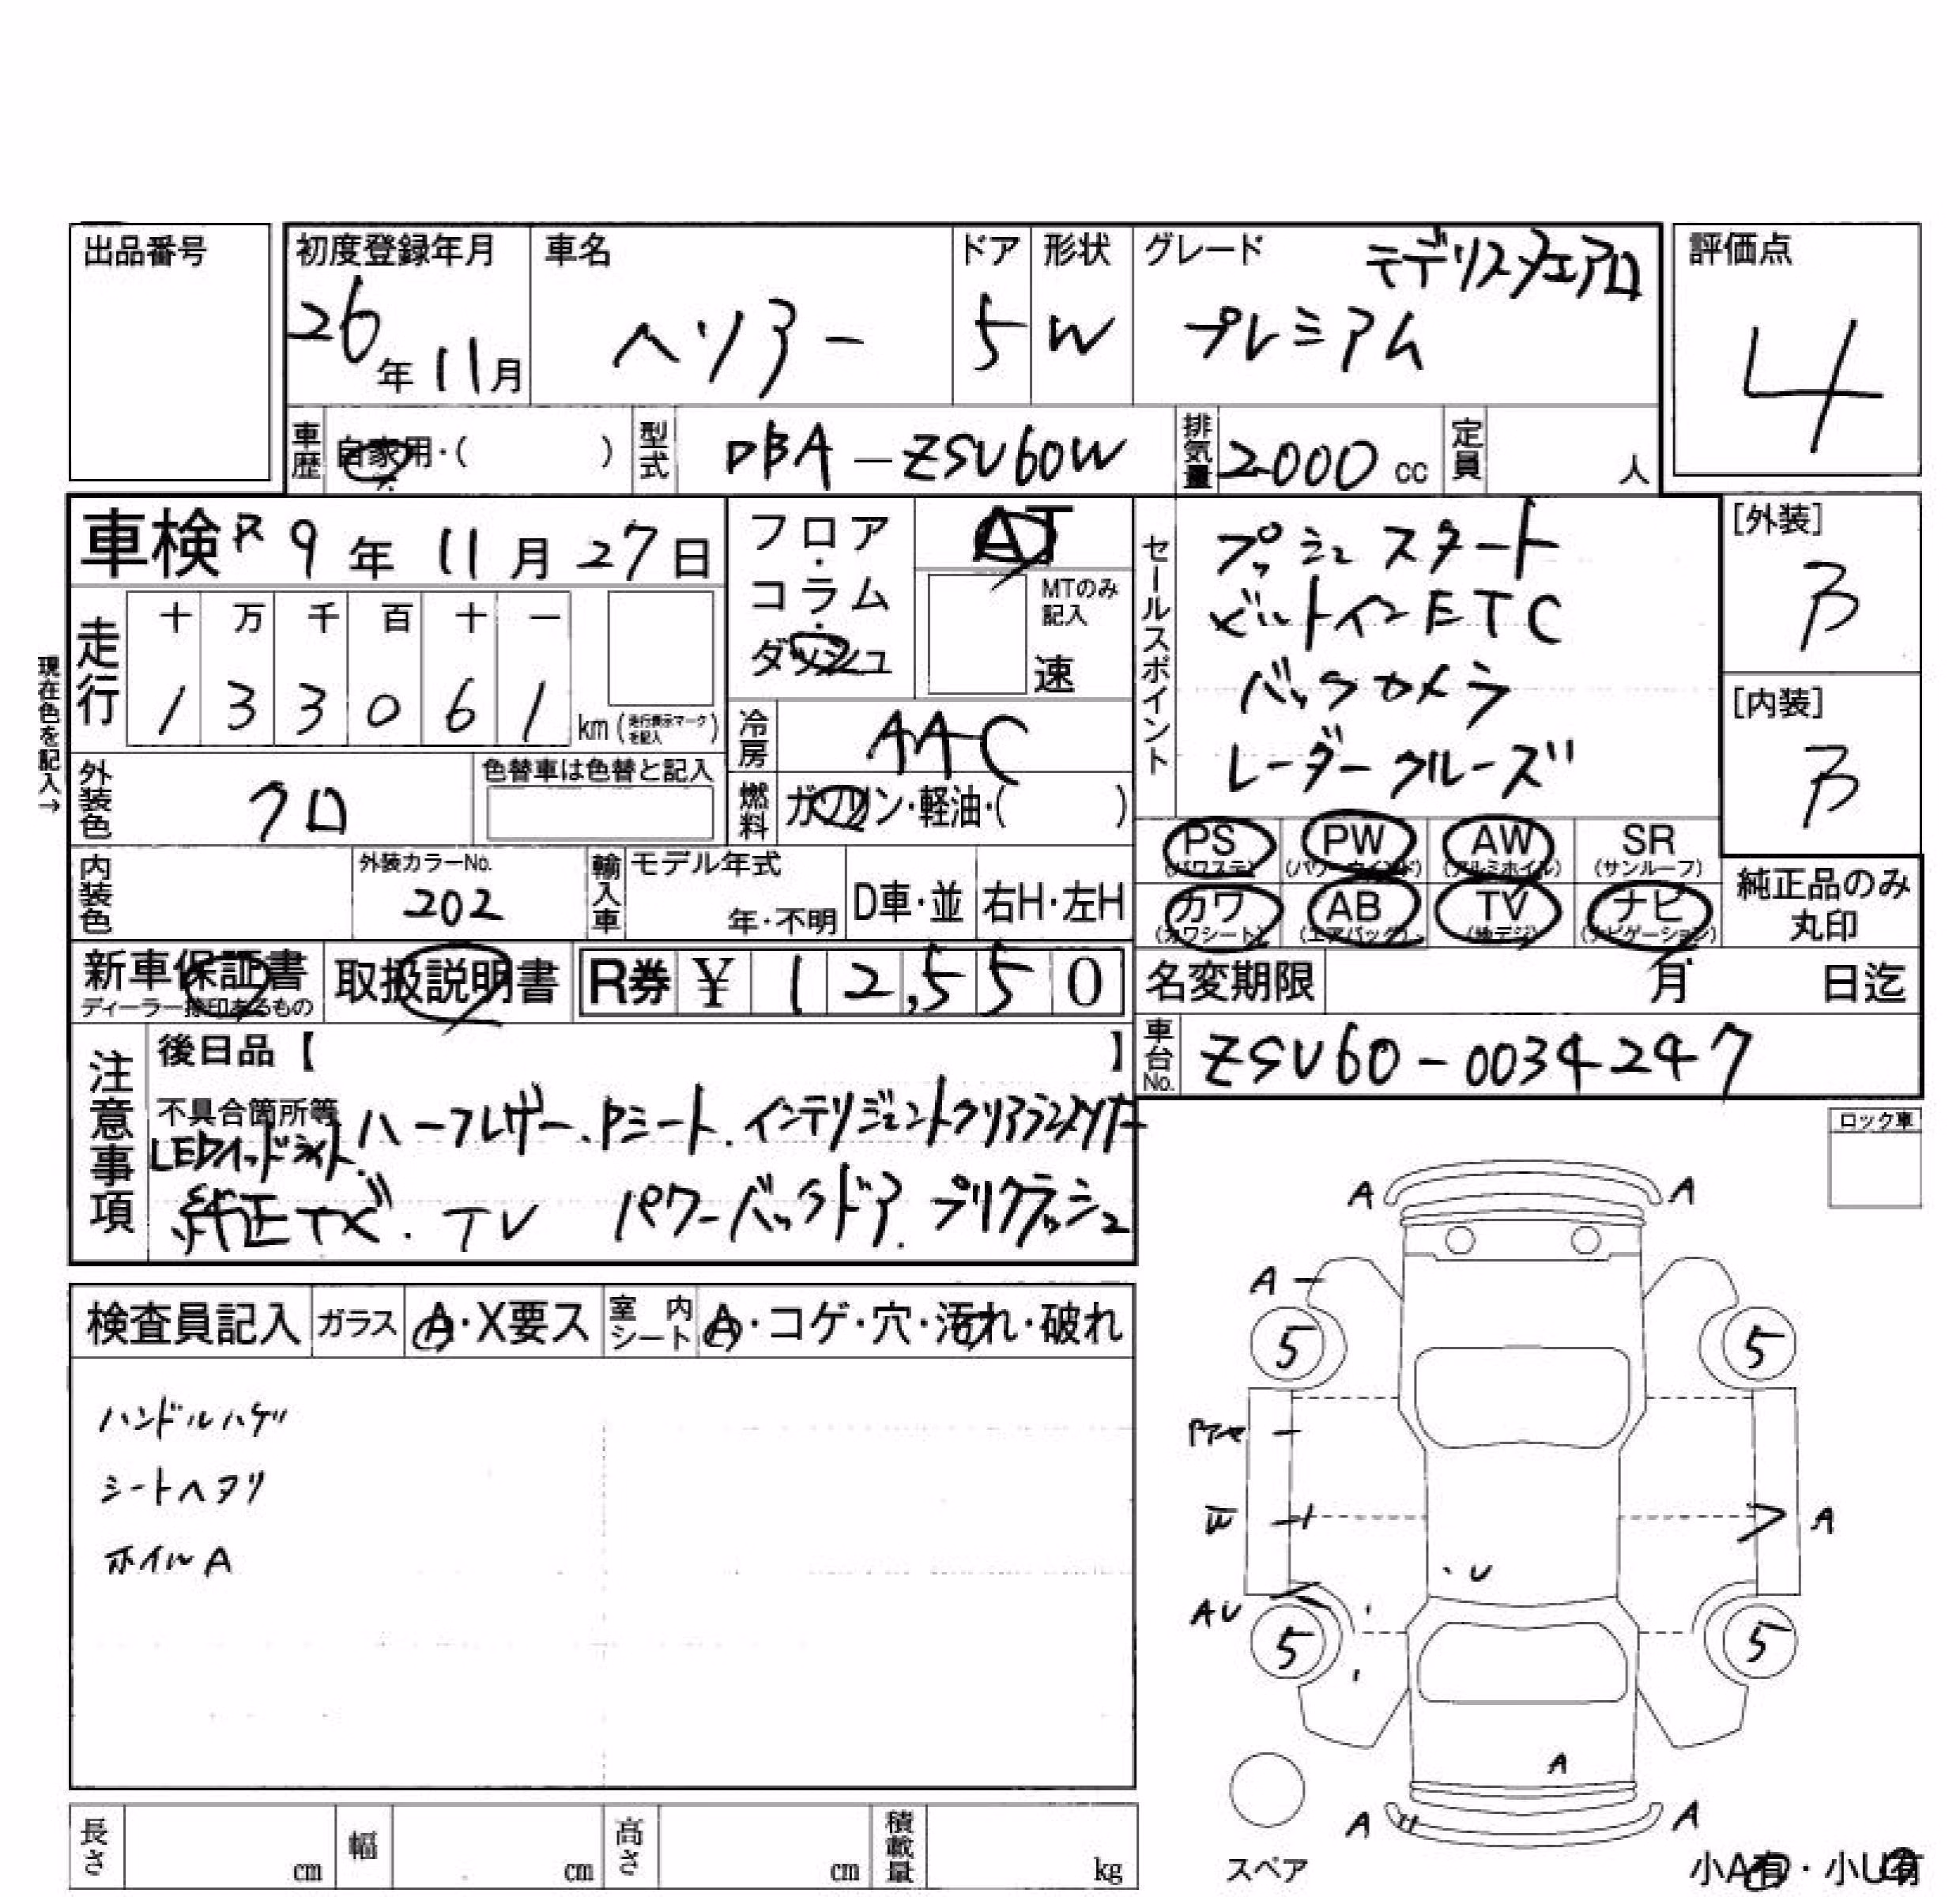 出品番号
初度登録年月 26年11月
車名 ハリアー
ドア 5
形状 W
グレード プレミアム
評価点 4
車歴 自家用・( )
型式 DBA-ZSU60W
排気量 2000cc
定員 人
車検 R9年11月27日
フロア・コラム・ダッシュ
AT
MTのみ記入 速
現在色を記入→
走行 十 万 千 百 十 一
1 3 3 0 6 1 km(走行表示マークを記入)
冷房 AAC
外装色 クロ
色替車は色替と記入
燃料 ガソリン・軽油・( )
内装色
外装カラーNo. 202
輸入車 モデル年式 年・不明
D車・並 右H・左H
セールスポイント
プッシュスタート
ビルトインETC
バックカメラ
レーダークルーズ
[外装] B
[内装] B
PS(パワステ) PW(パワーウインド) AW(アルミホイル) SR(サンルーフ)
カワ(カワシート) AB(エアバッグ) TV(地デジ) ナビ(ナビゲーション)
純正品のみ丸印
新車保証書 ディーラー捺印あるもの
取扱説明書
R券 ¥12,550
名変期限 月 日迄
車台No. ZSU60-0034247
注意事項
後日品【 】
不具合箇所等
ハーフレザー.Pシート.インテリジェントクリアランスソナー
LEDヘッドライト.
純正ナビ.TV パワーバックドア.プリクラッシュ
ロック車
検査員記入 ガラス A・X要ス 室内シート A・コゲ・穴・汚れ・破れ
ハンドルハゲ
シートヘタリ
ホイルA
A A
A
5 5
W A
U
AU
5 5
A
A A
スペア
小A有・小U有
長さ cm 幅 cm 高さ cm 積載量 kg